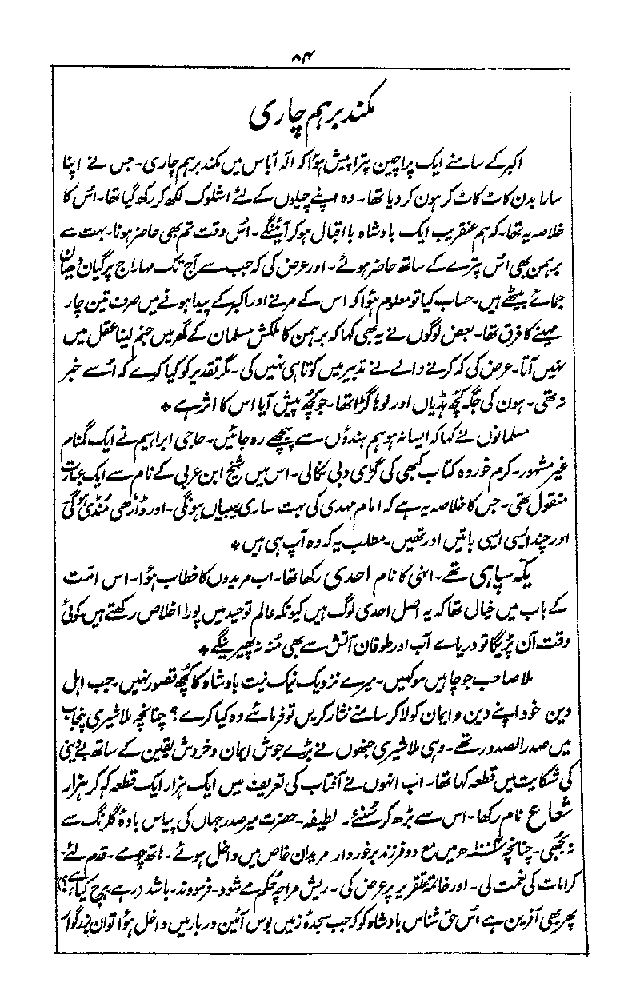 ۸۴
مکند برہم چاری
اکبر کے سامنے ایک پراچین پترا پیش ہؤا کہ الہ آباس میں مکند برہم چاری۔ جس نے اپنا
سارا بدن کاٹ کاٹ کر ہون کر دیا تھا۔ وہ اپنے چیلوں کے لئے اشلوک لکھ کر رکھ گیا تھا۔ اُس کا
خلاصہ یہ تھا۔ کہ ہم عنقریب ایک بادشاہ با اقبال ہو کر آئینگے۔ اُس وقت تم بھی حاضر ہونا۔ بہت سے
برہمن بھی اُس پترے کے ساتھ حاضر ہوئے۔ اور عرض کی کہ جب سے آج تک مہاراج پر گیان دھیان
جمائے بیٹھے ہیں۔ حساب کیا تو معلوم ہؤا کہ اس کے مرنے اور اکبر کے پیدا ہونے میں صرف تین چار
مہینے کا فرق تھا۔ بعض لوگوں نے یہ بھی کہا کہ برہمن کا ملکش مسلمان کے گھر میں جنم لینا عقل میں
نہیں آتا۔ عرض کی کہ کرنے والے نے تدبیر میں کوتاہی نہیں کی۔ مگر تقدیر کو کیا کرے کہ اُسے خبر
نہ تھی۔ ہون کی جگہ کچھ ہڈیاں اور لوہا گڑا تھا۔ جو کچھ پیش آیا اس کا اثر ہے ٭
مسلمانوں نے کہا کہ ایسا نہ ہو ہم ہندؤں سے پیچھے رہ جائیں۔ حاجی ابراہیم نے ایک گمنام
غیر مشہور۔ کرم خوردہ کتاب کبھی کی گڑی دبی نکالی۔ اس میں شیخ ابن عربی کے نام سے ایک عبارت
منقول تھی۔ جس کا خلاصہ یہ ہے کہ امام مہدی کی بہت ساری بیبیاں ہونگی۔ اور ڈاڑھی مُنڈی ہو گی
اور چند ایسی ایسی باتیں اور تھیں۔ مطلب یہ کہ وہ آپ ہی ہیں ٭
یکہ سپاہی تھے۔ انہی کا نام احدی رکھا تھا۔ اب مریدوں کا خطاب ہؤا۔ اس امت
کے باب میں خیال تھا کہ یہ اصل احدی لوگ ہیں کیونکہ عالم توحید میں پورا اخلاص رکھتے ہیں کوئی
وقت آن پڑیگا تو دریاے آب اور طوفان آتش سے بھی مُنہ نہ پھیرینگے ٭
ملا صاحب جو چاہیں سو کہیں۔ میرے نزدیک نیک نیت بادشاہ کا کچھ قصور نہیں۔ جب اہل
دین خود اپنے دین و ایمان کو لا کر سامنے نثار کریں تو فرمائے وہ کیا کرے؟ چنانچہ ملا شیری پنجاب
میں صدر الصدور تھے۔ وہی ملا شیری جنھوں نے بڑے جوش ایمان و خروش یقین کے ساتھ بے دینی
کی شکایت میں قطعہ کہا تھا۔ اب انہوں نے آفتاب کی تعریف میں ایک ہزار ایک قطعہ کہہ کر ہزار
شعاع نام رکھا۔ اس سے بڑھ کر سُنئے۔ لطیفہ۔ حضرت میر صدر جہاں کی پیاس بادۂ گلرنگ سے
نہ بجھی۔ چنانچہ میں مع دو فرزند برخوردار مریدانِ خاص میں داخل ہوئے۔ ہاتھ چومے۔ قدم لئے۔
کرامات کی نعمت لی۔ اور خاتمۂ تقریر پر عرض کی۔ ریش مرا چہ حکم میشود۔ فرمودند۔ باشد
پھر بھی آفرین ہے اُس حق شناس بادشاہ کو کہ جب سجدۂ زمیں بوس آئین دربار میں داخل ہؤا تو ان بزرگوار